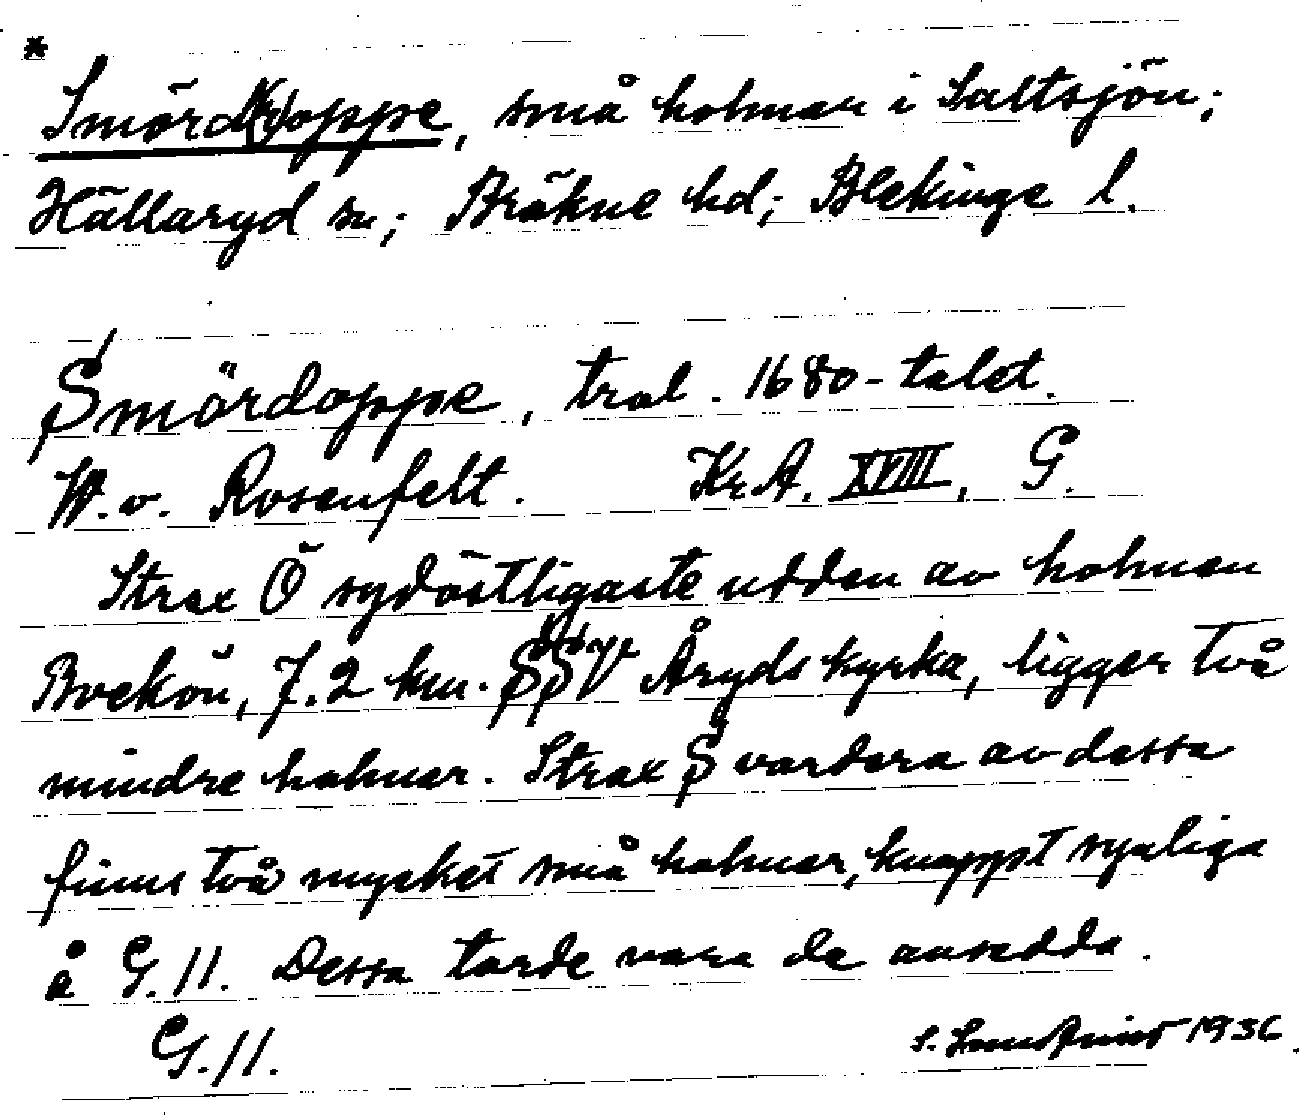 *
Smörd(k)oppe, små holmar i Saltsjön;
Hällaryd sn; Bräkne hd; Blekinge l.
Smördoppe, trol. 1680-talet.
W. v. Rosenfelt. KrA. XVIII, G.
Strax Ö sydöstligaste udden av holmen
Boekön, 7.2 km. SSV Åryds kyrka, ligger två
mindre holmar. Strax S vardera av dessa
finns två mycket små holmar, knappt synliga
å G.11. Dessa torde vara de avsedda.
G.11. 1936.